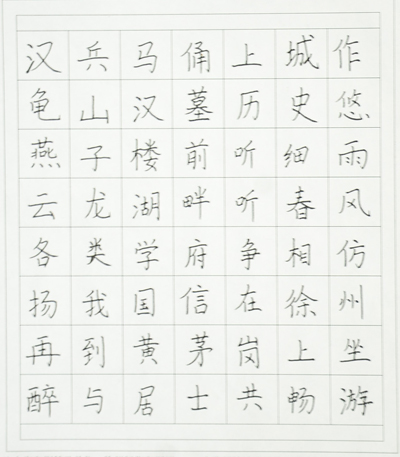 汉兵马俑上城作
龟山汉墓历史悠
燕子楼前听细雨
云龙湖畔听春风
各类学府争相仿
扬我国信在徐州
再到黄茅岗上坐
醉与居士共畅游